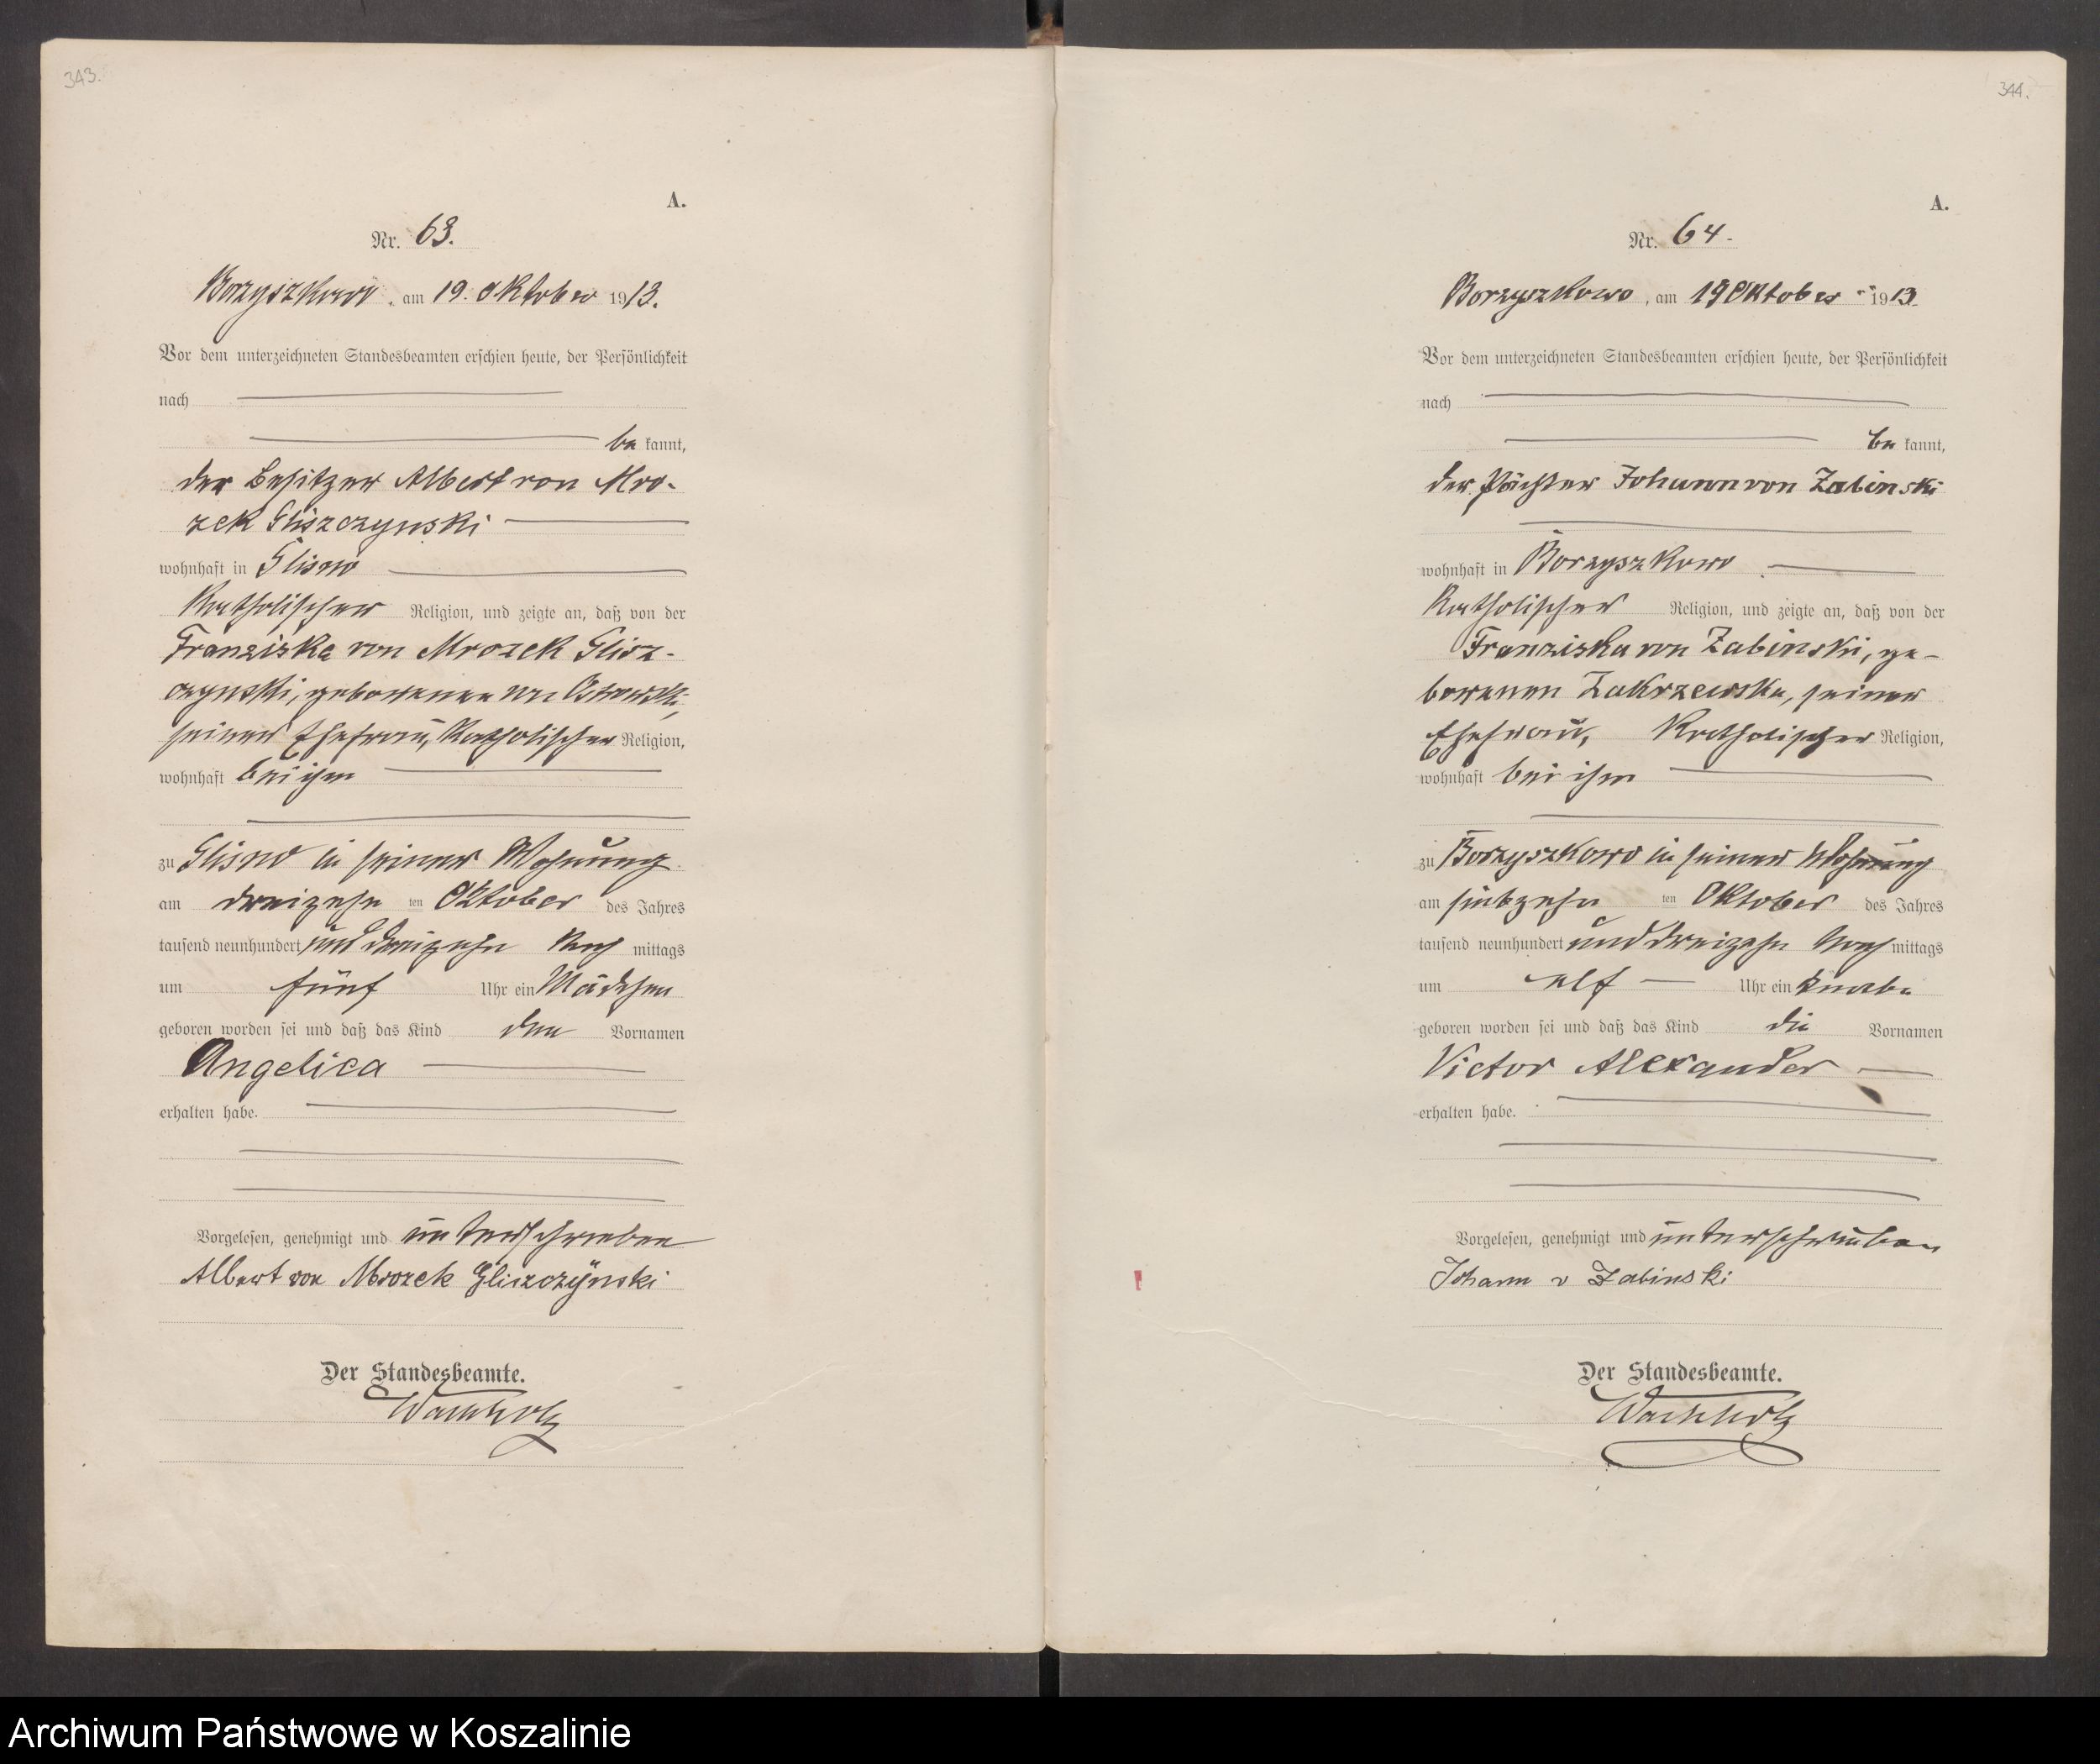 343.
A.
Nr. 63.
Borzyszkowo, am 19. Oktober 1913.
Vor dem unterzeichneten Standesbeamten erschien heute, der Persönlichkeit
nach
be kannt,
der Besitzer Albert von Mro-
zek Gliszczynski
wohnhaft in Glisno
katholischer Religion, und zeigte an, daß von der
Franziska von Mrozek Glisz-
czynski, geborenen von Ostrowski,
seiner Ehefrau, katholischer Religion,
wohnhaft bei ihm
zu Glisno in seiner Wohnung
am dreizehn ten Oktober des Jahres
tausend neunhundert und dreizehn Nach mittags
um fünf Uhr ein Mädchen
geboren worden sei und daß das Kind den Vornamen
Angelica
erhalten habe.
Vorgelesen, genehmigt und unterschrieben
Albert von Mrozek Gliszczÿnski
Der Standesbeamte.
Wachholz
344.
A.
Nr. 64.
Borzyszkowo, am 19 Oktober 1913.
Vor dem unterzeichneten Standesbeamten erschien heute, der Persönlichkeit
nach
be kannt,
der Pächter Johann von Zabinski
wohnhaft in Borzyszkowo
katholischer Religion, und zeigte an, daß von der
Franziska von Zabinski, ge-
borenen Zakrzewska, seiner
Ehefrau, katholischer Religion,
wohnhaft bei ihm
zu Borzyszkowo in seiner Wohnung
am siebzehn ten Oktober des Jahres
tausend neunhundert und dreizehn Nach mittags
um elf Uhr ein Knabe
geboren worden sei und daß das Kind die Vornamen
Victor Alexander
erhalten habe.
Vorgelesen, genehmigt und unterschrieben
Johann v Zabinski
Der Standesbeamte.
Wachholz
Archiwum Państwowe w Koszalinie